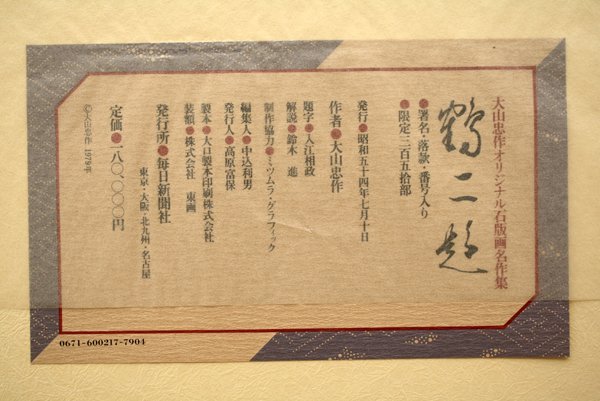 大山忠作オリジナル石版画名作集
鶴二題
署名・落款・番号入り
限定二百五拾部
発行 昭和五十四年七月十日
作者 大山忠作
題字 入江相政
解説 鈴木 進
制作協力 ミツムラ・グラフィック
編集人 中込利男
発行人 高原富保
製本 大口製本印刷株式会社
装額 株式会社 東画
発行所 毎日新聞社
東京・大阪・北九州・名古屋
定価 一八〇、〇〇〇円
©大山忠作 1979年
0671-600217-7904